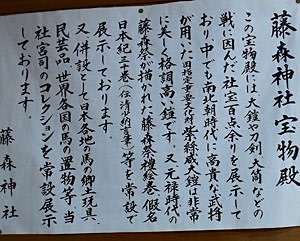 藤森神社宝物殿
この宝物殿には大鎧や刀剣、大筒などの
戦に因んだ社宝百余りを展示して
おり、中でも南北朝時代に高貴な武将
が用いた旧指定重要文化財紫絲威大鎧は非常
に美しく格調高い鎧です。又、元禄時代の
藤森祭が描かれた藤森祭礼絵巻、假名
日本紀三巻等を常設で
展示しております。
又、併設として日本各地の馬の郷土玩具、
民芸品、世界各国の馬の置物等、当
社宮司のコレクションを常設展示
しております。
藤森神社